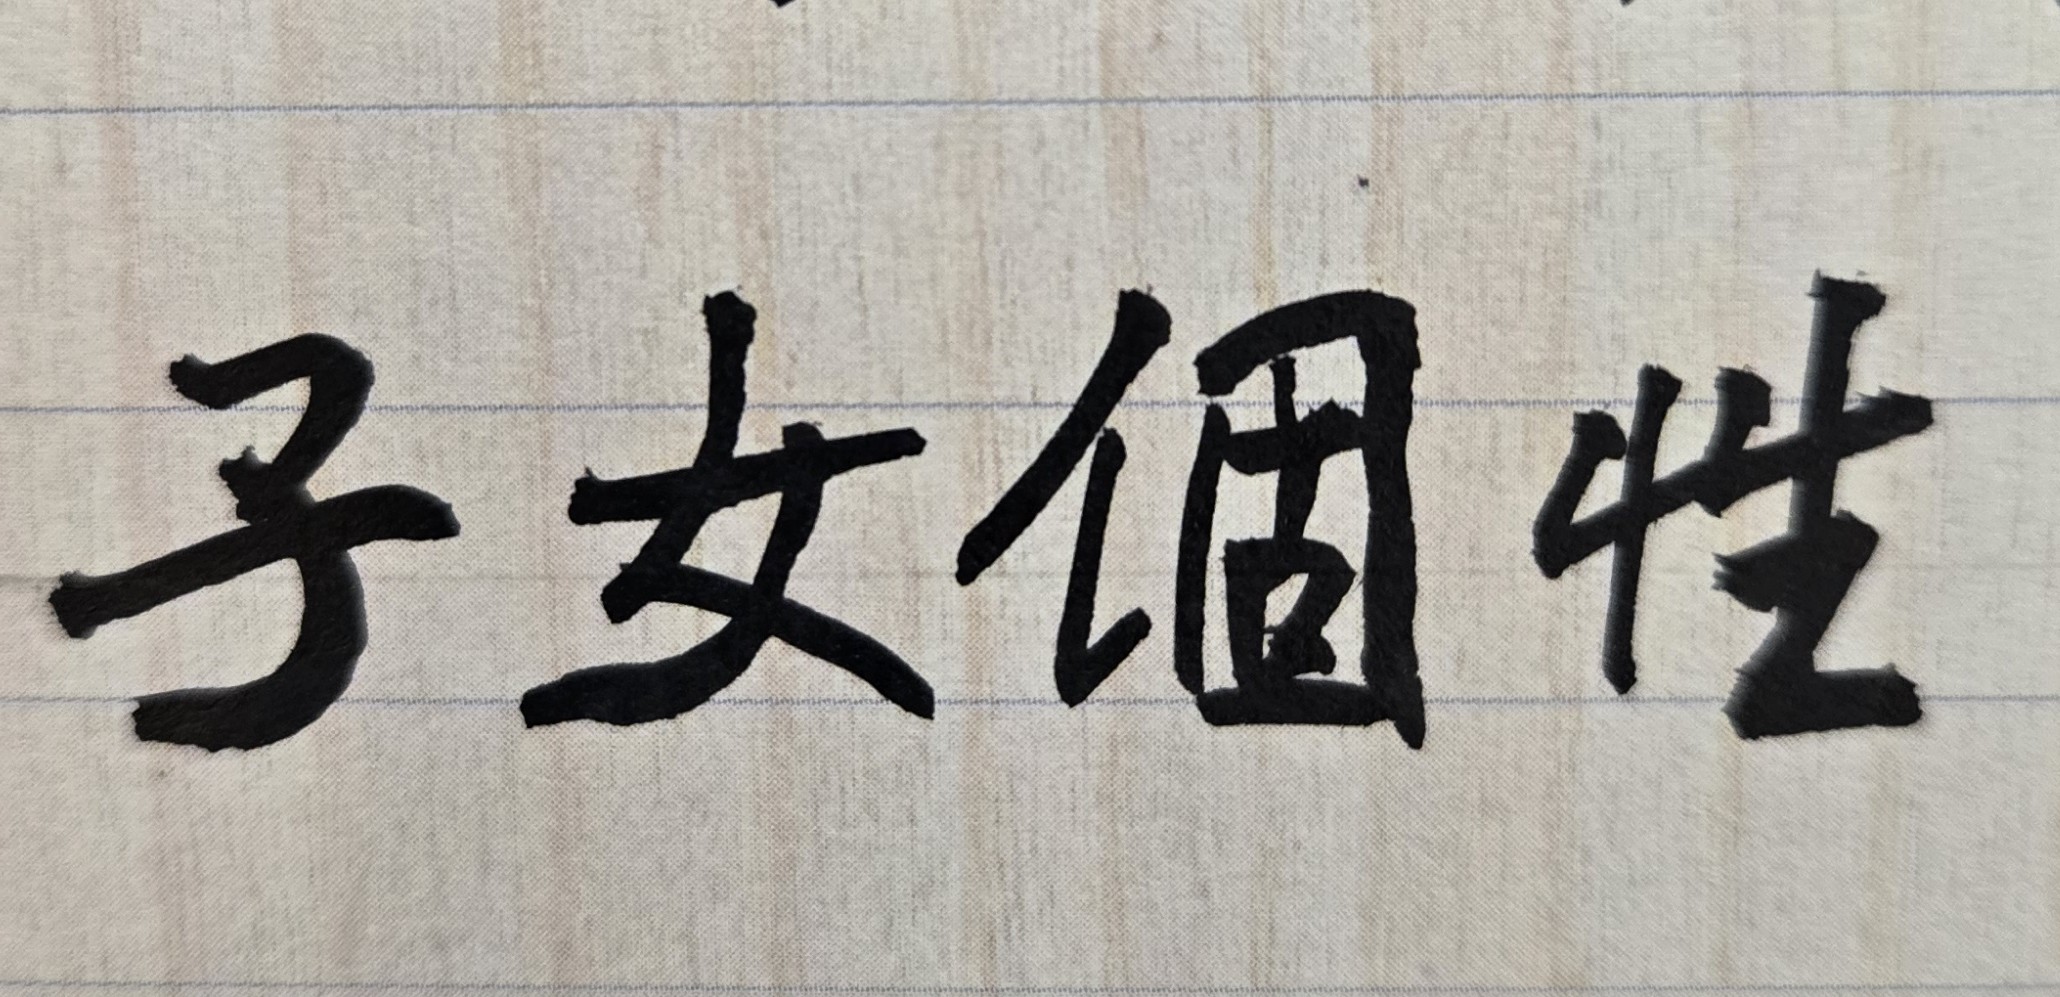 子女個性